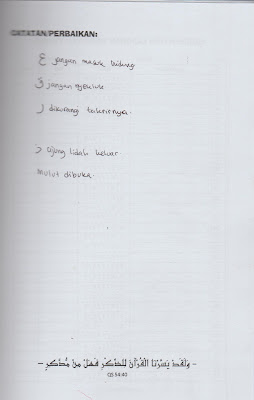 CATATAN/PERBAIKAN:
ع jangan masuk hidung
jangan
ر dikurangi takrirnya.
ujung lidah keluar
mulut dibuka.
- وَلَقَدْ يَسَّرْنَا الْقُرْآنَ لِلذِّكْرِ فَهَلْ مِنْ مُدَّكِرٍ -
QS 54:40